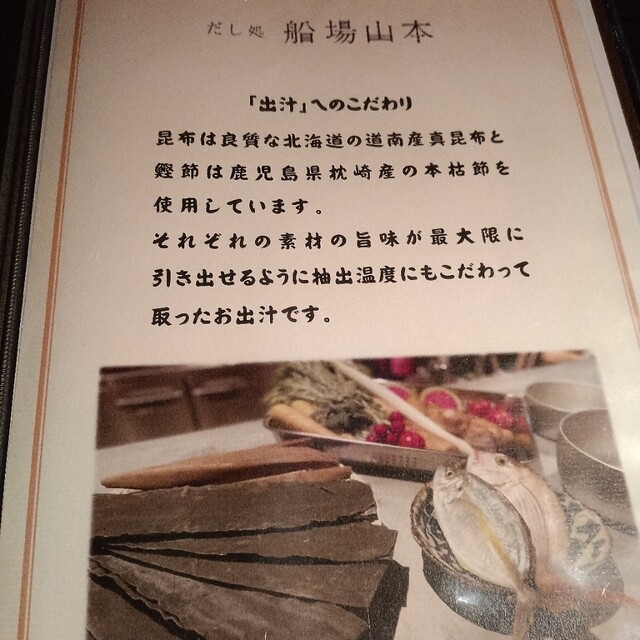 だし処 船場山本
「出汁」へのこだわり
昆布は良質な北海道の道南産真昆布と
鰹節は鹿児島県枕崎産の本枯節を
使用しています。
それぞれの素材の旨味が最大限に
引き出せるように抽出温度にもこだわって
取ったお出汁です。